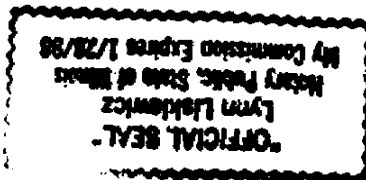 "OFFICIAL SEAL"
Lynn Liskiewicz
Notary Public, State of Illinois
My Commission Expires 1/28/98